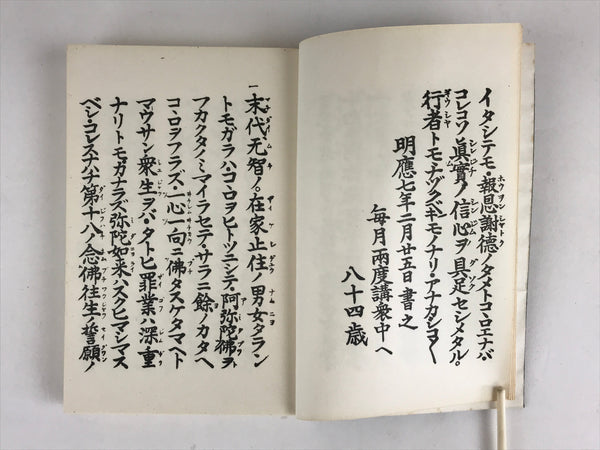 イタシテモ・報恩謝徳ノタメトコヽロエナバ・
コレコソ眞實ノ信心ヲ具足セシメタル。
行者トモナヅクベキモノナリ・アナカシコ〳〵
明應七年二月廿五日書之
毎月兩度講衆中ヘ
八十四歳
一
末代无智ノ。在家止住ノ男女タラン
トモガラハコヽロヲヒトツニシテ・阿弥陀佛ヲ
フカクタノミマイラセテ・サラニ餘ノカタヘ
コヽロヲフラズ・一心一向ニ佛タスケタマヘト
マウサン衆生ヲバ・タトヒ罪業ハ深重
ナリトモカナラズ弥陀如来ハスクヒマシマス
ベシ・コレスナハチ第十八ノ念佛往生ノ誓願ノ